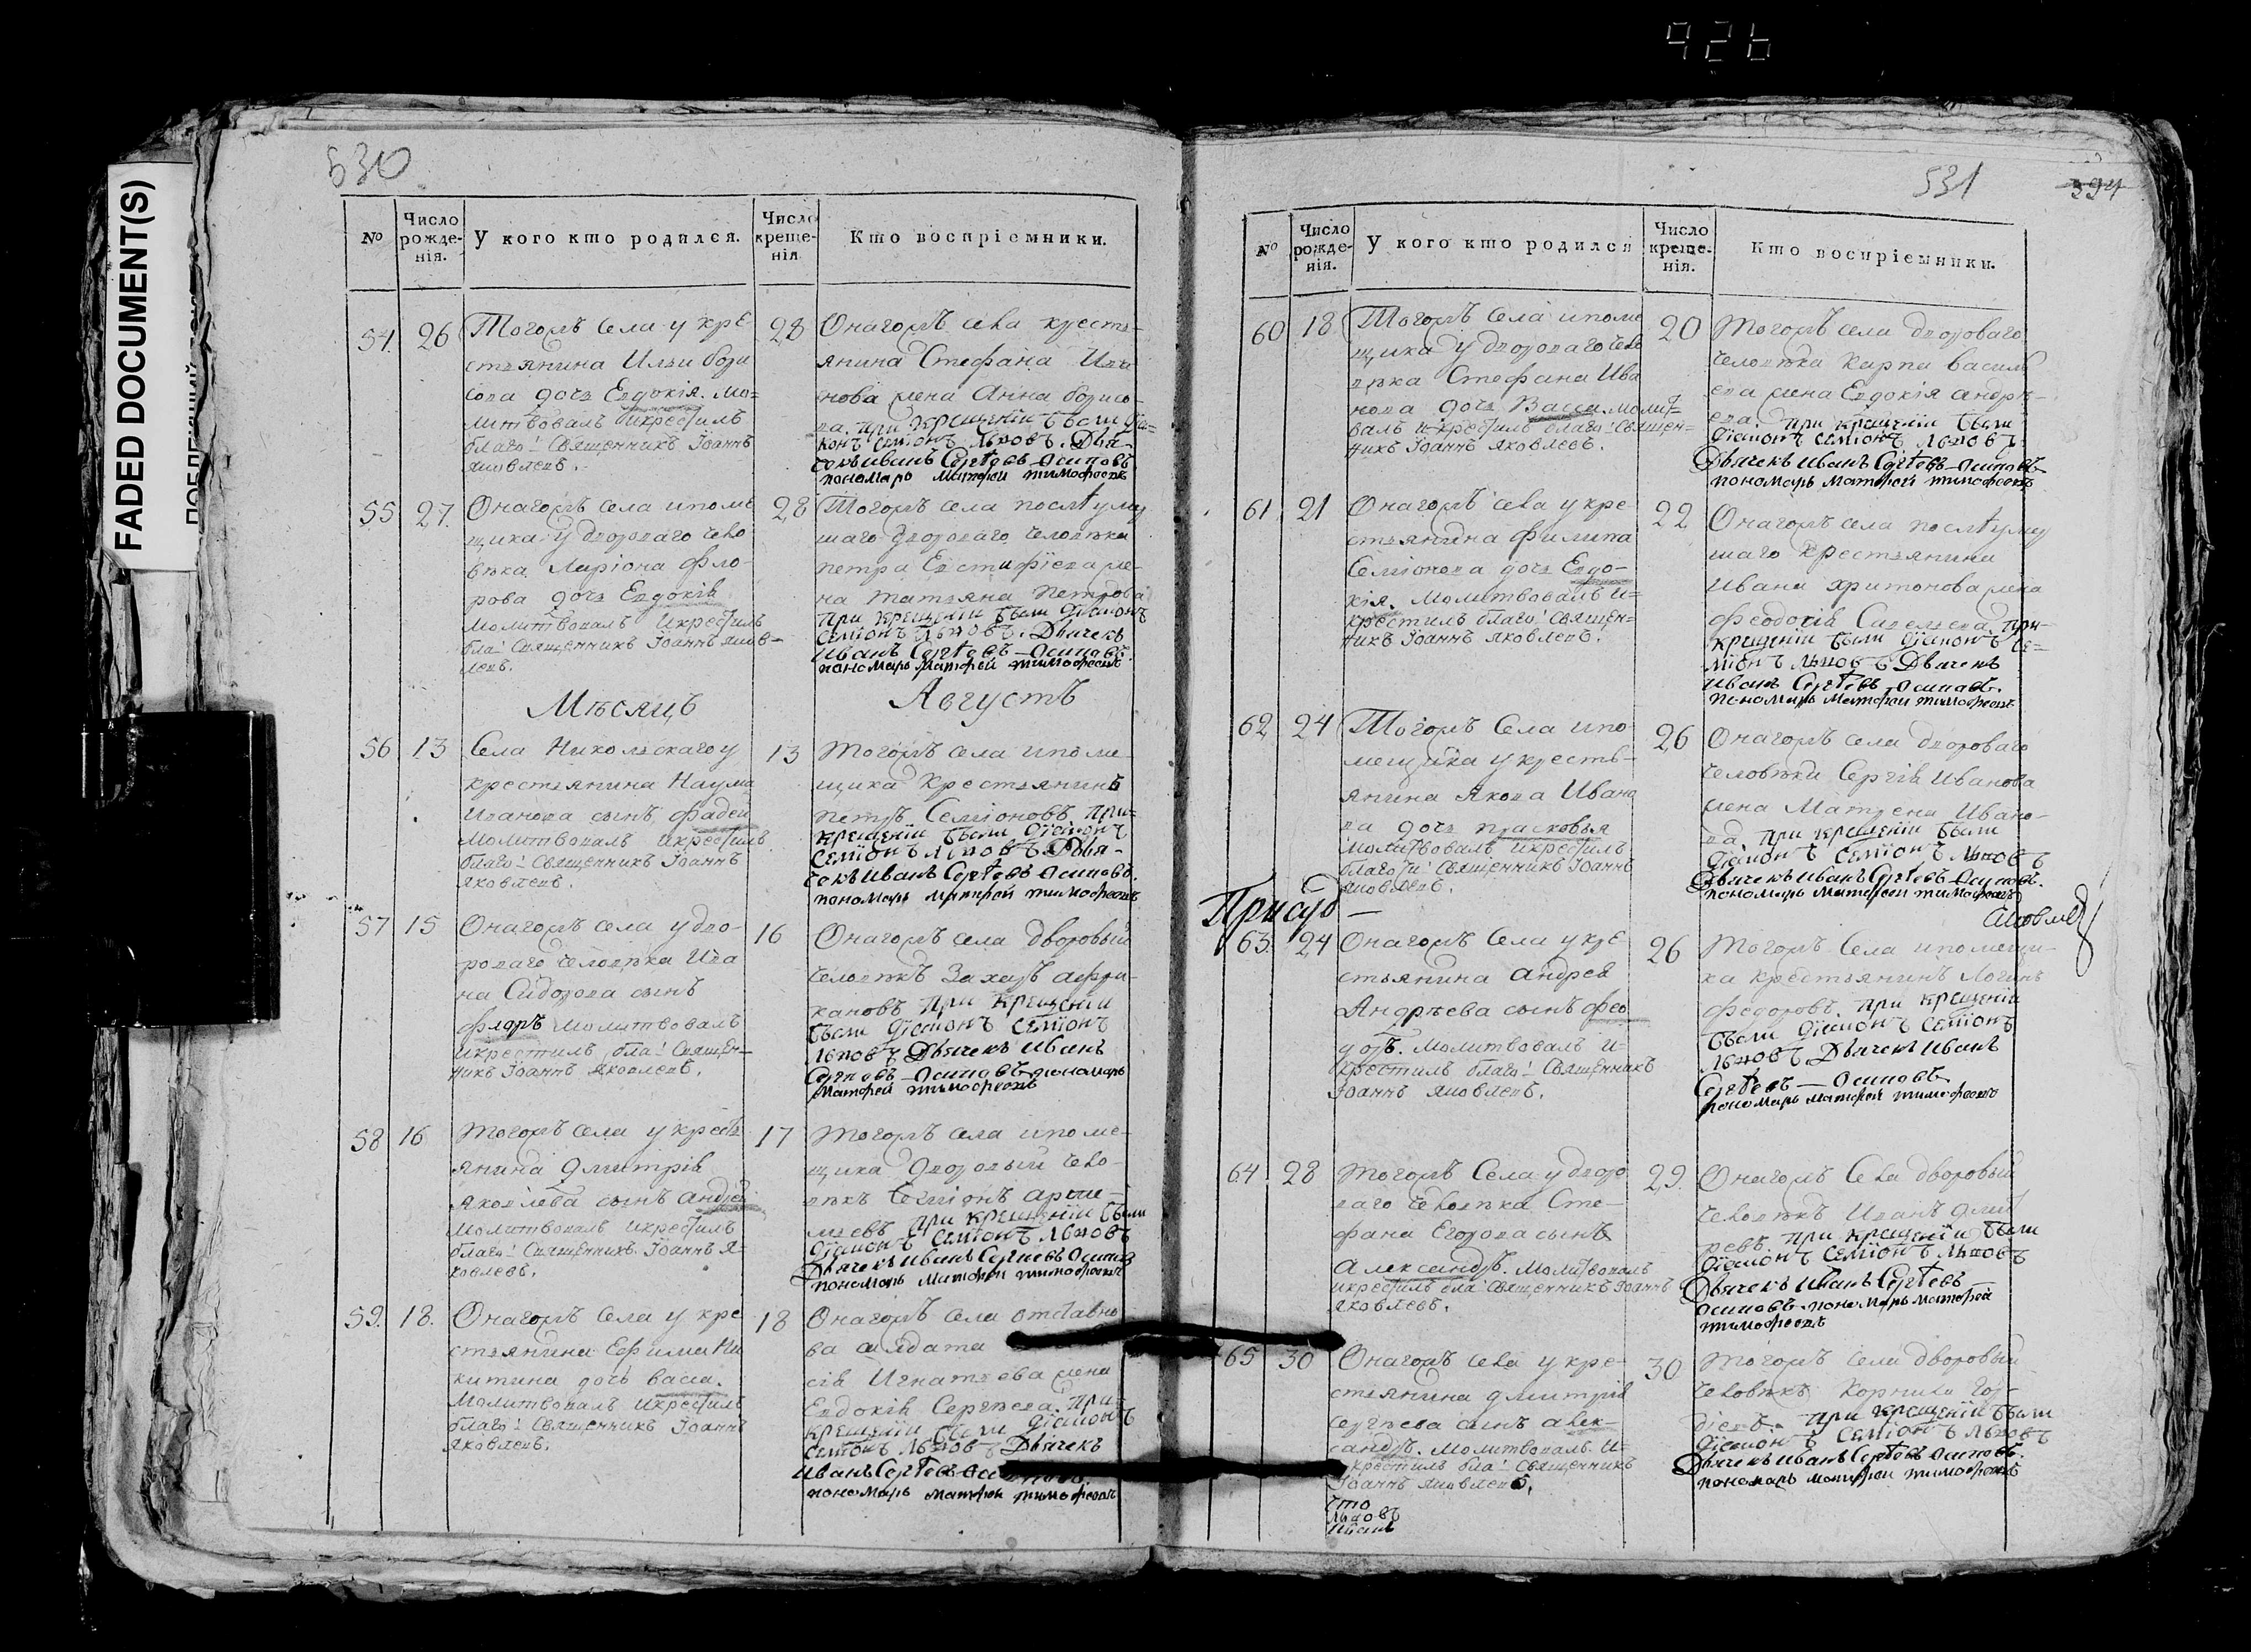 926
FADED DOCUMENT(S)
530
№
Число рожде-нія.
У кого кто родился.
Число креще-нія
Кто воспріемники.
54. 26
Тогожъ села у кре
стьянина Ильи бори
сова дочь Евдокія. мо=
литвовалъ икрестилъ
благо: Священникъ Іоаннъ
яковлевъ.
28
Онагожъ села крестъ-
янина Стефана Ива
нова жена Анна борисо-
ва. при крещеніи были діа-
конъ семіонъ львовъ. Дья-
чекъ иванъ Сергѣевъ Осиповъ
пономарь матфей тимофеевъ
55 27.
Онагожъ села ипоме
щика у двороваго чело
вѣка Ларіона фло-
рова дочь Евдокія
молитвовалъ икрестилъ
бла: Священникъ Іоаннъ яков-
левъ.
28
Тогожъ села послѣ умер
шаго двороваго человѣка
петра Евстифіева же-
на татьяна петрова
при крещеніи были діаконъ
семіонъ львовъ. Дьячекъ
иванъ Сергѣевъ Осиповъ
пономарь матфей тимофеевъ
Мѣсяцъ Августъ
56 13
Села Никольскаго у
крестьянина Наума
Иванова сынъ фадей
молитвовалъ икрестилъ
благо: Священникъ Іоаннъ
яковлевъ.
13
тогожъ села ипоме
щика крестьянинъ
петръ Семіоновъ при-
крещеніи были діаконъ
семіонъ львовъ Дья-
чекъ иванъ Сергѣевъ Осиповъ.
пономарь матфей тимофеевъ
57 15
Онагожъ села у дво-
роваго человѣка Ива
на Сидорова сынъ
флоръ молитвовалъ
икрестилъ бла: Священ-
никъ Іоаннъ яковлевъ.
16
Онагожъ села дворовый
человѣкъ Захаръ афри-
кановъ при крещеніи
были діаконъ семіонъ
львовъ Дьячекъ иванъ
Сергѣевъ Осиповъ пономарь
матфей тимофеевъ
58 16
тогожъ села у кресть
янина дмитрія
яковлева сынъ андрей
молитвовалъ икрестилъ
благо: Священникъ Іоаннъ я-
ковлевъ.
17
тогожъ села ипоме-
щика дворовый чело-
вѣкъ Семіонъ арте-
мьевъ при крещеніи были
діаконъ семіонъ львовъ
Дьячекъ иванъ Сергѣевъ Осиповъ
пономарь матфей тимофеевъ
59. 18.
Онагожъ села у кре
стьянина Ефима Ни
китина дочь васса.
молитвовалъ икрестилъ
благо: Священникъ Іоаннъ
яковлевъ.
18
Онагожъ села отставно
ва солдата
сія Игнатьева жена
Евдокія Сергѣева. при
крещеніи были діаконъ
семіонъ львовъ Дьячекъ
иванъ Сергѣевъ
пономарь матфей тимофеевъ
531
394
№
Число рожде-нія.
У кого кто родился
Число креще-нія.
Кто воспріемники.
60 18.
Тогожъ Села ипоме
щика у двороваго чело
вѣка Стефана Ива
нова дочь Васса. молит-
валъ и крестилъ благо: Священ-
никъ Іоаннъ яковлевъ.
20
тогожъ села двороваго
человѣка Карпа василь
ева жена Евдокія андрѣ-
ева. при крещеніи были
діаконъ семіонъ львовъ.
Дьячекъ иванъ Сергѣевъ Осиповъ
пономарь матфей тимофеевъ
61. 21
Онагожъ села у кре
стьянина филипа
Семіонова дочь Евдо-
кія. молитвовалъ и=
крестилъ благо: Священ=
никъ Іоаннъ яковлевъ.
22
Онагожъ села послѣ умер
шаго крестьянина
ивана харитонова жена
феодосія Савельева. при-
крещеніи были діаконъ се=
міонъ львовъ Дьячекъ
иванъ Сергѣевъ Осиповъ.
пономарь матфей тимофеевъ
62 24
Тогожъ Села ипо
мещика у кресть-
янина якова Ивано
ва дочь прасковья
молитвовалъ икрестилъ
благо: Священникъ Іоаннъ
яковлевъ.
26
Онагожъ села двороваго
человѣка Сергія Иванова
жена Матрена Ивано-
ва. при крещеніи были
діаконъ семіонъ львовъ
Дьячекъ иванъ Сергѣевъ Осиповъ.
пономарь матфей тимофеевъ
63. 24
Онагожъ Села у кре
стьянина андрея
Андрѣева сынъ фео
доръ. молитвовалъ и-
крестилъ благо: Священникъ
Іоаннъ яковлевъ.
26
тогожъ Села ипомещи-
ка крестьянинъ логинъ
федоровъ. при крещеніи
были діаконъ семіонъ
львовъ. Дьячекъ иванъ
Сергѣевъ — Осиповъ
пономарь матфей тимофеевъ
64. 28
тогожъ Села у дворо
ваго человѣка Сте-
фана Егорова сынъ
Александръ. молитвовалъ
икрестилъ бла: Священникъ Іоаннъ
яковлевъ.
29.
Онагожъ Села дворовый
человѣкъ Иванъ
ревъ при крещеніи были
діаконъ семіонъ львовъ
Дьячекъ иванъ Сергѣевъ —
Осиповъ пономарь матфей
тимофеевъ
65 30
Онагожъ села у кре-
стьянина дмитрія
Сергѣева сынъ алек-
сандръ. молитвовалъ и=
крестилъ бла: Священникъ
Іоаннъ яковлевъ.
что
львовъ
иванъ
30
тогожъ села дворовый
человѣкъ Корнила Гор-
діевъ. при крещеніи были
діаконъ семіонъ львовъ
Дьячекъ иванъ Сергѣевъ Осиповъ.
пономарь матфей тимофеевъ